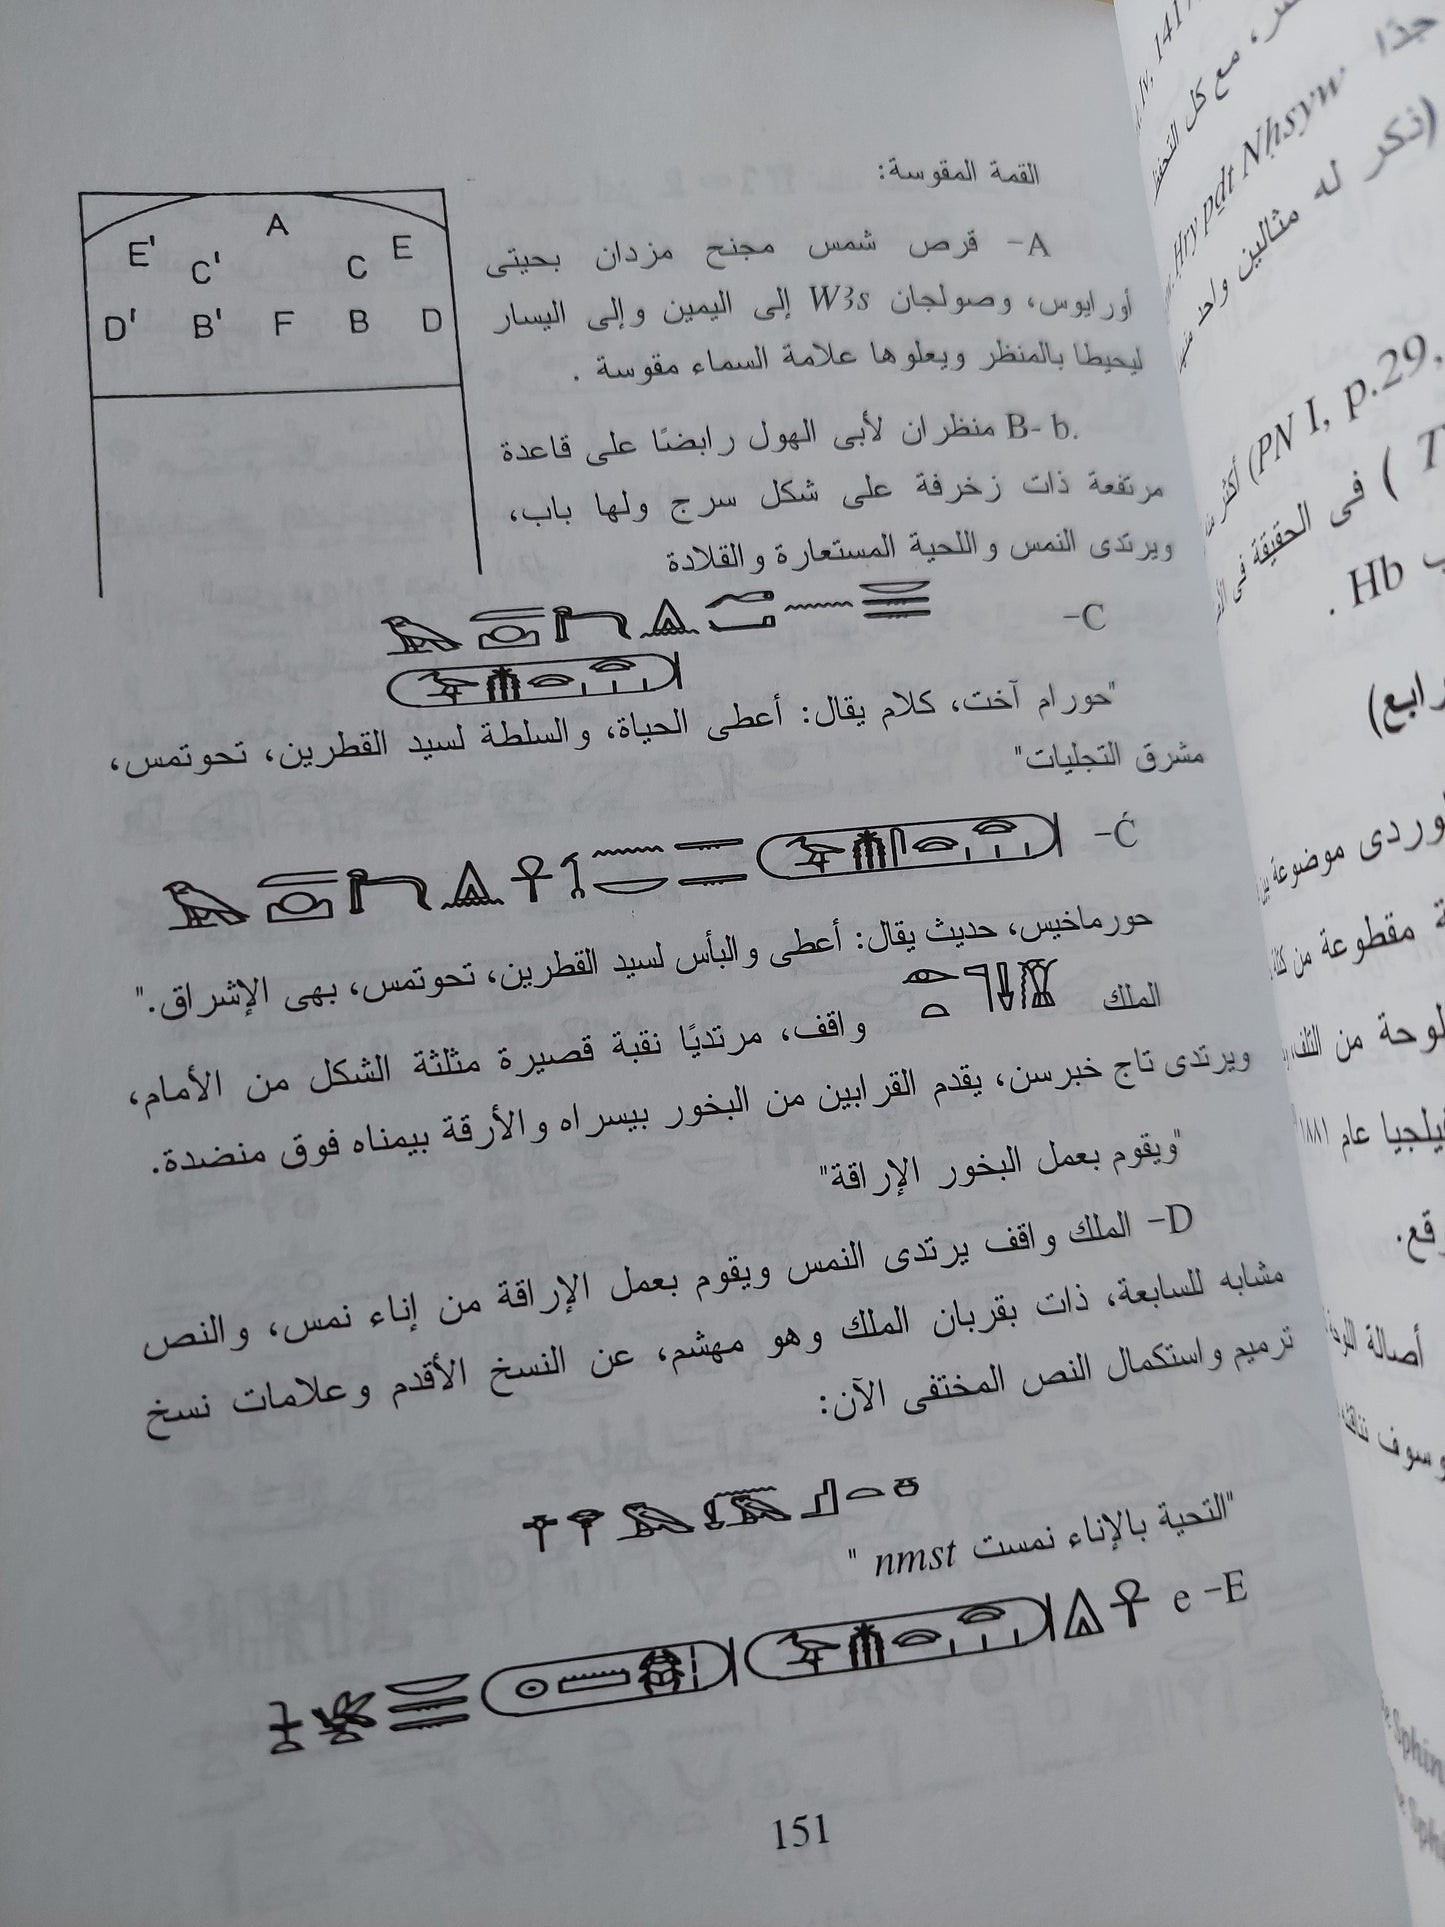 القمة المقوسة:
A- قرص شمس مجنح مزدان بحيتى
أورايوس، وصولجان W3s إلى اليمين وإلى اليسار
ليحيطا بالمنظر ويعلوها علامة السماء مقوسة .
B- b. منظران لأبى الهول رابضًا على قاعدة
مرتفعة ذات زخرفة على شكل سرج ولها باب،
ويرتدى النمس واللحية المستعارة والقلادة
A
E' C' C E
D' B' F B D
C-
"حورام آخت، كلام يقال: أعطى الحياة، والسلطة لسيد القطرين، تحوتمس،
مشرق التجليات"
Ć-
حورماخيس، حديث يقال: أعطى والبأس لسيد القطرين، تحوتمس، بهى الإشراق."
الملك واقف، مرتديًا نقبة قصيرة مثلثة الشكل من الأمام،
ويرتدى تاج خبرسن، يقدم القرابين من البخور بيسراه والأرقة بيمناه فوق منضدة.
"ويقوم بعمل البخور الإراقة"
D- الملك واقف يرتدى النمس ويقوم بعمل الإراقة من إناء نمس، والنص
مشابه للسابعة، ذات بقربان الملك وهو مهشم، عن النسخ الأقدم وعلامات نسخ
ترميم واستكمال النص المختفى الآن:
"التحية بالإناء نمست nmst "
e -E
151
جدًا
Hry pḏt Nḥsyw
(ذكر له مثالين واحد
(PN I, p.29.
فى الحقيقة فى
Hb .
رابع)
مقطوعة من
لوحة من التلف
عام ١٨٨١
أصالة
وسوف